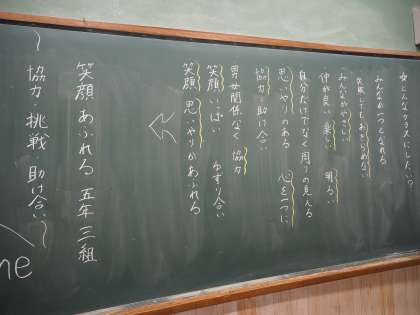 ☆どんなクラスにしたい？
みんなが一つになれる
失敗してもあきらめない
みんながやさしい
仲が良い 楽しい 明るい
自分だけでなく周りの見える
思いやりのある 心を一つに
協力・助け合い
男女関係なく 協力
笑顔いっぱい ゆずり合い
笑顔 思いやりがあふれる
笑顔あふれる 五年三組
〜協力・挑戦・助け合い〜
ne